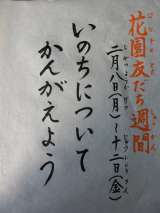 花園友だち週間
二月八日(月)～十二日(金)
いのちについて
かんがえよう